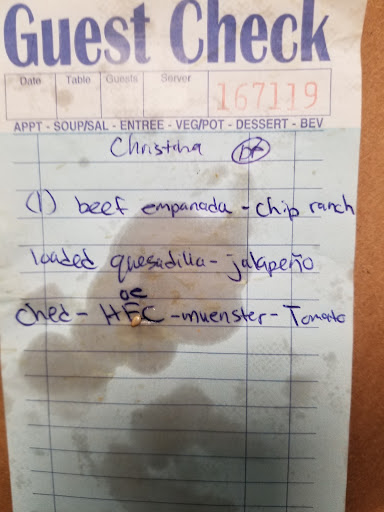 Guest Check
Date Table Guests Server
167119
APPT - SOUP/SAL - ENTREE - VEG/POT - DESSERT - BEV
Christina
(1) beef empanada - chip ranch
loaded quesadilla - jalapeño
oe
ched - HFC - muenster - Tomato